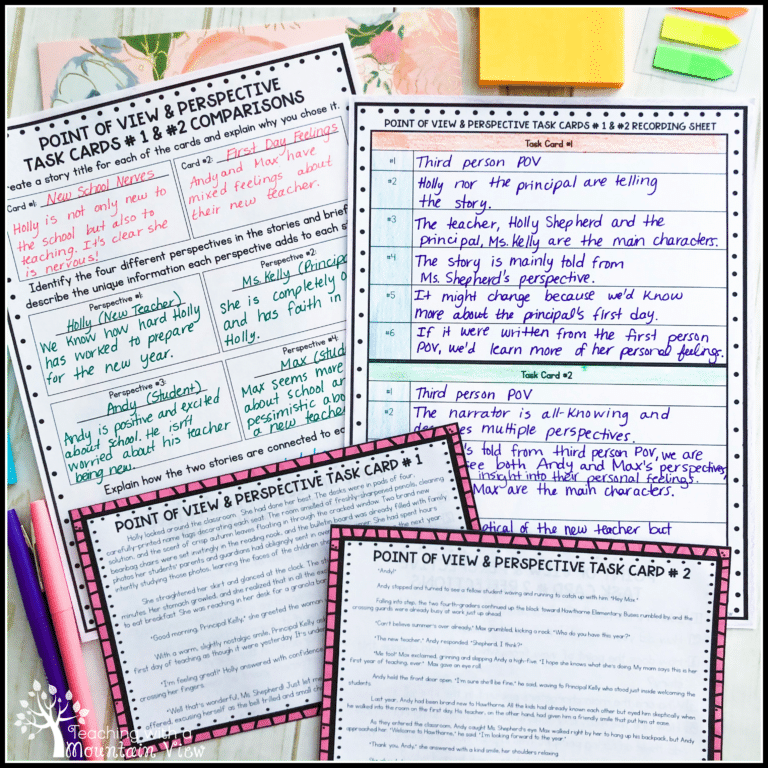 POINT OF VIEW & PERSPECTIVE
TASK CARDS # 1 & #2 COMPARISONS
reate a story title for each of the cards and explain why you chose it.
Card #1: New School Nerves
Holly is not only new to
the school but also to
teaching. It's clear she
is nervous!
Card #2: First Day Feelings
Andy and Max have
mixed feelings about
their new teacher.
Identify the four different perspectives in the stories and brief
describe the unique information each perspective adds to each s
Perspective #1:
Holly (New Teacher)
We know how hard Holly
has worked to prepare
for the new year.
Perspective #2:
Ms. Kelly (Princip
She is completely
and has faith in
Holly.
Perspective #3:
Andy (Student)
Andy is positive and excited
about school. He isn't
worried about his teacher
being new.
Perspective #4:
Max (Stud
Max seems more
about school an
pessimistic abo
a new teache
Explain how the two stories are connected to ea
POINT OF VIEW & PERSPECTIVE TASK CARDS # 1 & #2 RECORDING SHEET
Task Card #1
#1 Third person POV
#2 Holly nor the principal are telling
the story.
#3 The teacher, Holly Shepherd and the
principal, Ms. Kelly are the main characters.
#4 The story is mainly told from
Ms. Shepherd's perspective.
#5 It might change because we'd know
more about the principal's first day.
#6 If it were written from the first person
POV, we'd learn more of her personal feelings.
Task Card #2
#1 Third person POV
#2 The narrator is all-knowing and
multiple perspectives.
's told from third person POV, we are
see both Andy and Max's perspectives
insight into their personal feelings.
Max are the main characters.
of the new teacher but
POINT OF VIEW & PERSPECTIVE TASK CARD # 1
Holly looked around the classroom. She had done her best. The desks were in pods of four,
carefully-printed name tags decorating each seat. The room smelled of freshly-sharpened pencils, cleaning
solution, and the scent of crisp autumn leaves floating in through the cracked window. Two brand new
beanbag chairs were set invitingly in the reading nook, and the bulletin board was already filled with family
photos her students' parents and guardians had obligingly sent in over She had spent hours
intently studying those photos, learning the faces of the children she the next year.
She straightened her skirt and glanced at the clock. The
minutes. Her stomach growled, and she realized that in all the
to eat breakfast. She was reaching in her desk for a granola bar
"Good morning, Principal Kelly," she greeted the woman
With a warm, slightly nostalgic smile, Principal Kelly
first day of teaching as though it were yesterday. It's
"I'm feeling great!" Holly answered with confidence
crossing her fingers.
"Well that's wonderful, Ms. Shepherd! Just let me
offered, excusing herself as the bell trilled and small
POINT OF VIEW & PERSPECTIVE TASK CARD # 2
"Andy!"
Andy stopped and turned to see a fellow student waving and running to catch up with him. "Hey Max."
Falling into step, the two fourth graders continued up the block toward Hawthorne Elementary. Buses rumbled by, and the
crossing guards were already busy at work just up ahead.
"Can't believe summer's over already," Max grumbled, kicking a rock. "Who do you have this year?"
"The new teacher," Andy responded. "Shepherd, I think?"
"Me too!" Max exclaimed, grinning and slapping Andy a high-five. "I hope she knows what she's doing. My mom says this is her
first year of teaching, ever." Max gave an eye roll.
Andy held the front door open. "I'm sure she'll be fine," he said, waving to Principal Kelly who stood just inside welcoming the
students.
Last year, Andy had been brand new to Hawthorne. All the kids had already known each other but eyed him skeptically when
he walked into the room on the first day. His teacher, on the other hand, had given him a friendly smile that put him at ease.
As they entered the classroom, Andy caught Ms. Shepherd's eye. Max walked right by her to hang up his backpack, but Andy
approached her. "Welcome to Hawthorne," he said. "I'm looking forward to the year."
"Thank you, Andy," she answered with a kind smile, her shoulders relaxing.
Teaching with a
Mountain View